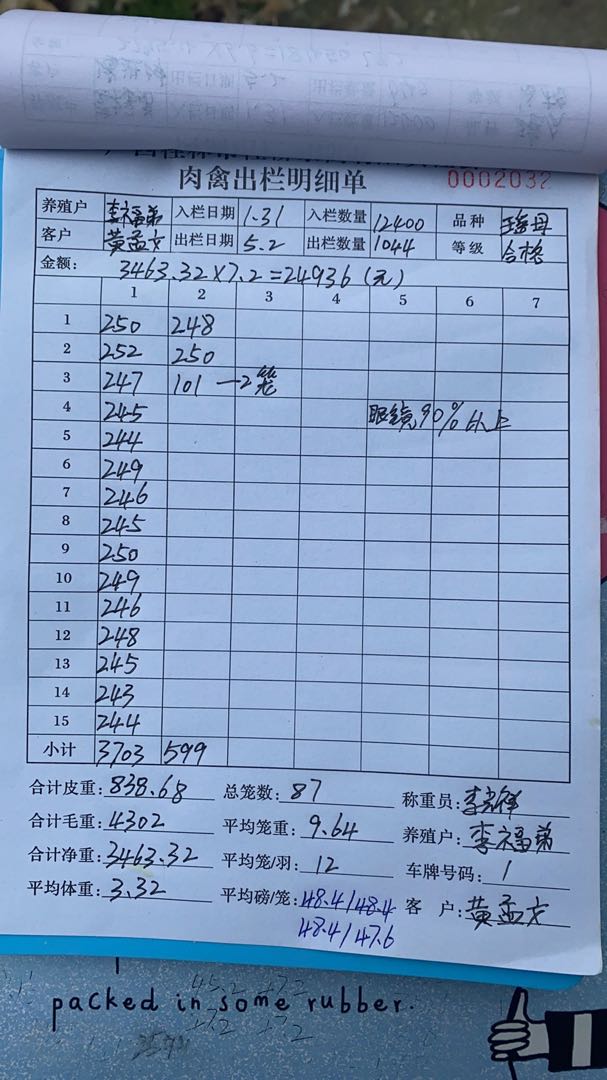 肉禽出栏明细单 0002032
养殖户 李福弟 入栏日期 1.31 入栏数量 12400 品种 瑶母
客户 黄孟文 出栏日期 5.2 出栏数量 1044 等级 合格
金额: 3463.32×7.2=24936(元)
1 2 3 4 5 6 7
1 250 248
2 252 250
3 247 101 一2笼
4 245 眼镜90%以上
5 244
6 249
7 246
8 245
9 250
10 249
11 246
12 248
13 245
14 243
15 244
小计 3703 599
合计皮重: 838.68 总笼数: 87 称重员:
合计毛重: 4302 平均笼重: 9.64 养殖户: 李福弟
合计净重: 3463.32 平均笼/羽: 12 车牌号码: 1
平均体重: 3.32 平均磅/笼: 48.4/48.4 客户: 黄孟文
48.4/47.6
packed in some rubber.